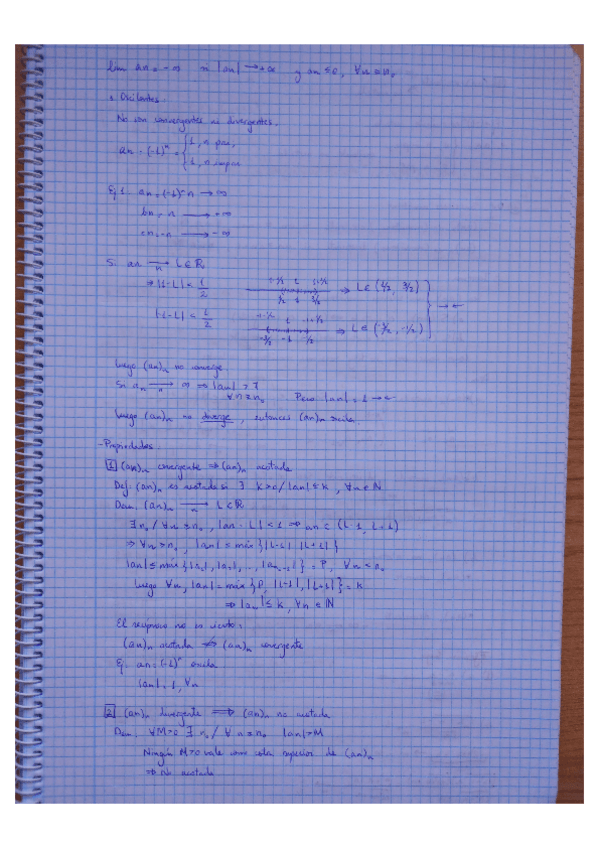 lim an = -∞ si |an| → +∞ y an ≤ 0, ∀n ≥ n₀
Oscilantes.
No son convergentes ni divergentes.
an = (-1)ⁿ = { 1, n par,
1, n impar
Ej 1. an = (-1)ⁿ n → ∞
bn = n → +∞
cn = -n → -∞
Si an → L ∈ ℝ
n
⇒ |1-L| < 1/2 ⇒ L ∈ (1/2, 3/2)
|-1-L| < 1/2 ⇒ L ∈ (-3/2, -1/2) } → ←
Luego (an)n no converge
Si an → ∞ ⇒ |an| > 7
∀n ≥ n₀ Pero |an| = 1 → ←
Luego (an)n no diverge, entonces (an)n oscila
- Propiedades.
1 (an)n convergente ⇒ (an)n acotada
Def. (an)n es acotada si ∃ k>0 / |an| ≤ k, ∀n ∈ ℕ
Dem. (an)n → L ∈ ℝ
n
∃ n₀ / ∀n ≥ n₀, |an - L| < 1 ⇒ an ∈ (L-1, L+1)
⇒ ∀n ≥ n₀, |an| ≤ máx {|L-1|, |L+1|}
|an| ≤ máx {|a₁|, |a₂|, ..., |aₙ₀₋₁|} = P, ∀n < n₀
Luego ∀n, |an| = máx {P, |L-1|, |L+1|} = k
⇒ |an| ≤ k, ∀n ∈ ℕ
El recíproco no es cierto:
(an)n acotada ⇏ (an)n convergente
Ej. an = (-1)ⁿ oscila
|an| = 1, ∀n
2 (an)n divergente ⇒ (an)n no acotada
Dem. ∀M>0 ∃ n₀ / ∀ n ≥ n₀ |an| > M
Ningún M>0 vale como cota superior de (an)n
⇒ No acotada